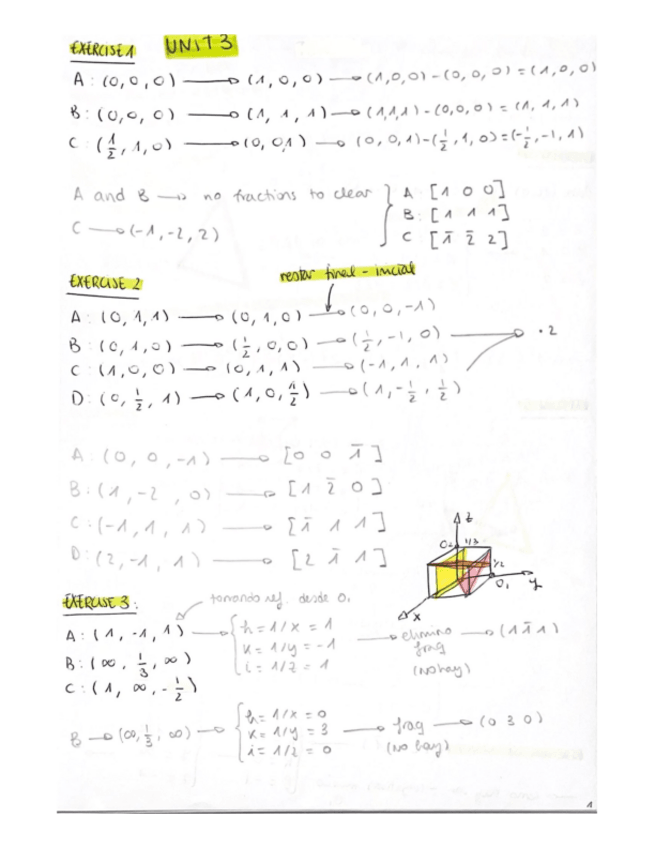 EXERCISE 1 UNIT 3
A: (0,0,0) → (1,0,0) → (1,0,0)-(0,0,0) = (1,0,0)
B: (0,0,0) → (1,1,1) → (1,1,1)-(0,0,0) = (1,1,1)
C: (1/2,1,0) → (0,0,1) → (0,0,1)-(1/2,1,0)=(-1/2,-1,1)
A and B → no fractions to clear } A: [1 0 0]
B: [1 1 1]
C → (-1,-2,2) C [1̄ 2̄ 2]
restar final - inicial
EXERCISE 2
A: (0,1,1) → (0,1,0) → (0,0,-1)
B: (0,1,0) → (1/2,0,0) → (1/2,-1,0) → ·2
C: (1,0,0) → (0,1,1) → (-1,1,1)
D: (0,1/2,1) → (1,0,1/2) → (1,-1/2,1/2)
A: (0,0,-1) → [0 0 1̄]
B: (1,-2,0) → [1 2̄ 0]
C: (-1,1,1) → [1̄ 1 1]
D: (2,-1,1) → [2 1̄ 1]
z
O₂ 1/3
1/2
O₁ y
x
EXERCISE 3:
tomando ref. desde O₁
A: (1,-1,1) → { h = 1/x = 1
k = 1/y = -1
l = 1/z = 1
→ elimino frag (No hay) → (1 1̄ 1)
B: (∞, 1/3, ∞)
C: (1, ∞, -1/2)
B → (∞, 1/3, ∞) → { h = 1/x = 0
k = 1/y = 3
l = 1/z = 0
→ frag (No hay) → (0 3 0)
1